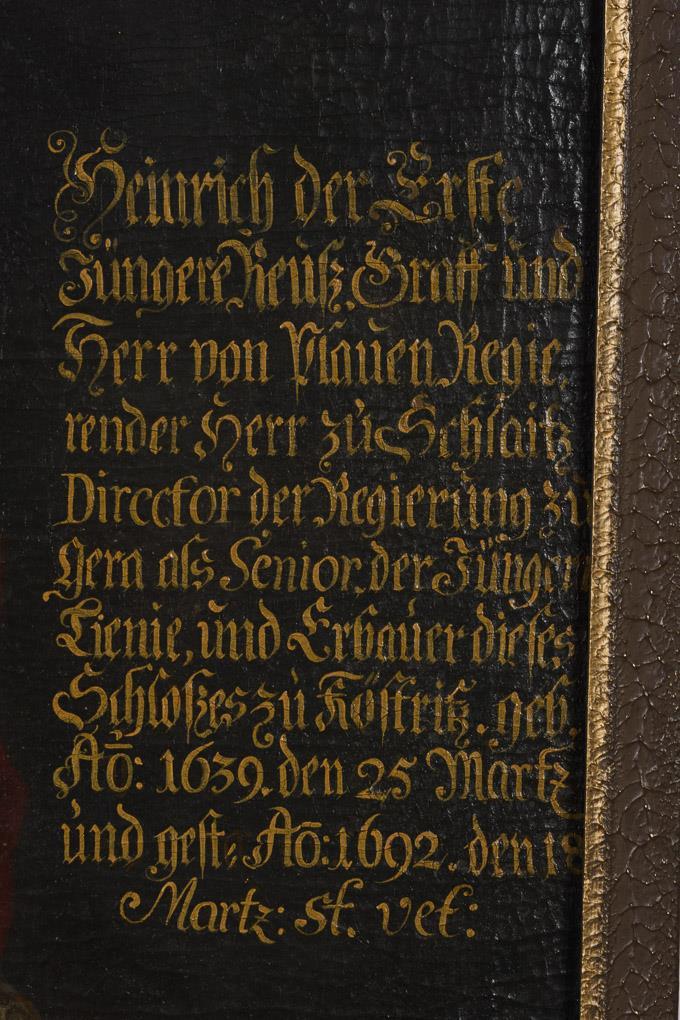 Heinrich der Erste
Jüngere Reüß, Graff ünd
Herr von Plauen, Regie,
render Herr zů Schlaitz
Director der Regierůng zů
Gera als Senior, der Jüngern
Lienie, ůnd Erbaůer dieses
Schloßes zů Köstritz. geb.
Aō: 1639. den 25 Martz
ůnd gest: Aō: 1692. den 18
Martz: st. vet: